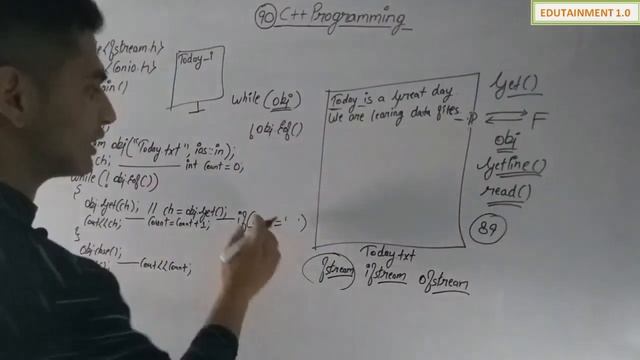 EDUTAINMENT 1.0
90 C++ Programming
<fstream.h>
<conio.h>
Today_1
while(obj)
!obj.eof()
("Today.txt", ios::in);
ch; int Count = 0;
while(!obj.eof())
{
obj.get(ch); // ch = obj.get();
Cout<<ch; Count=Count+1;
if( =' ')
}
obj.close();
Cout<<Count;
Today is a Great day
We are learing data files
P F
Today.txt
get()
obj
getline()
read()
89
fstream ifstream ofstream